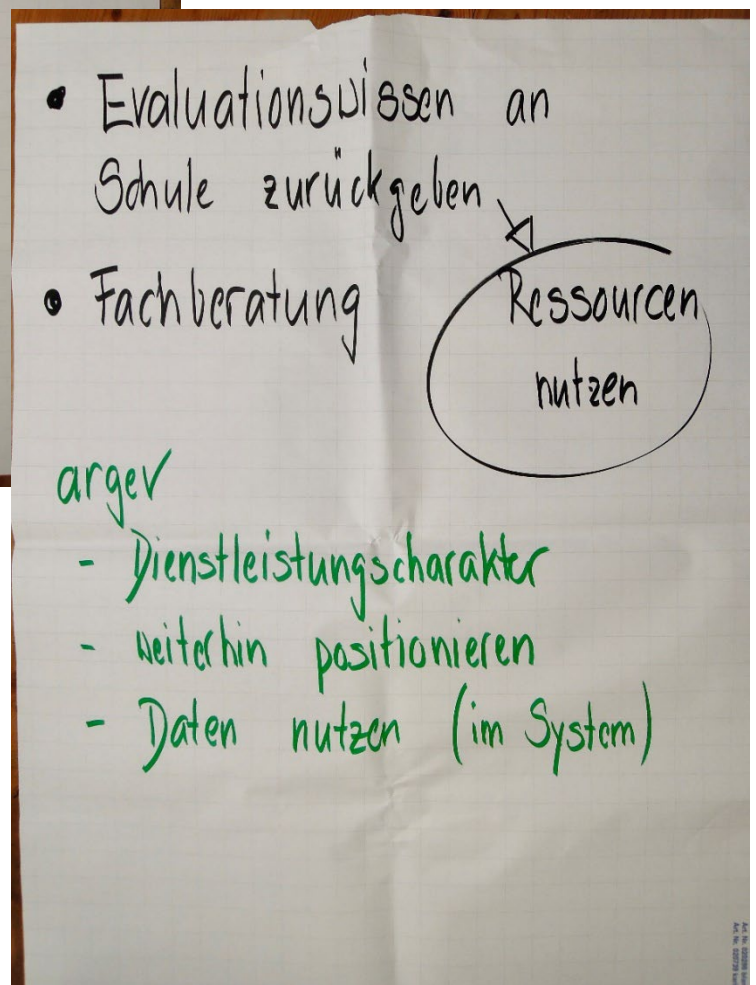 • Evaluationswissen an
Schule zurückgeben
• Fachberatung
Ressourcen
nutzen
argev
- Dienstleistungscharakter
- weiterhin positionieren
- Daten nutzen (im System)